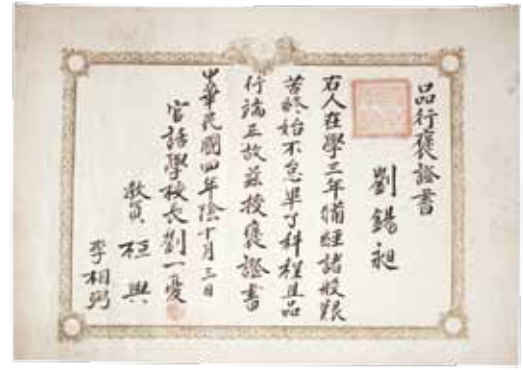 品行褒證書
劉錫昶
右人在學三年備經諸般艱
苦終始不怠畢了科程且品
行端正故茲授褒證書
中華民國四年陰十月三日
官話學校長劉一憂
教員桓興
李相弼